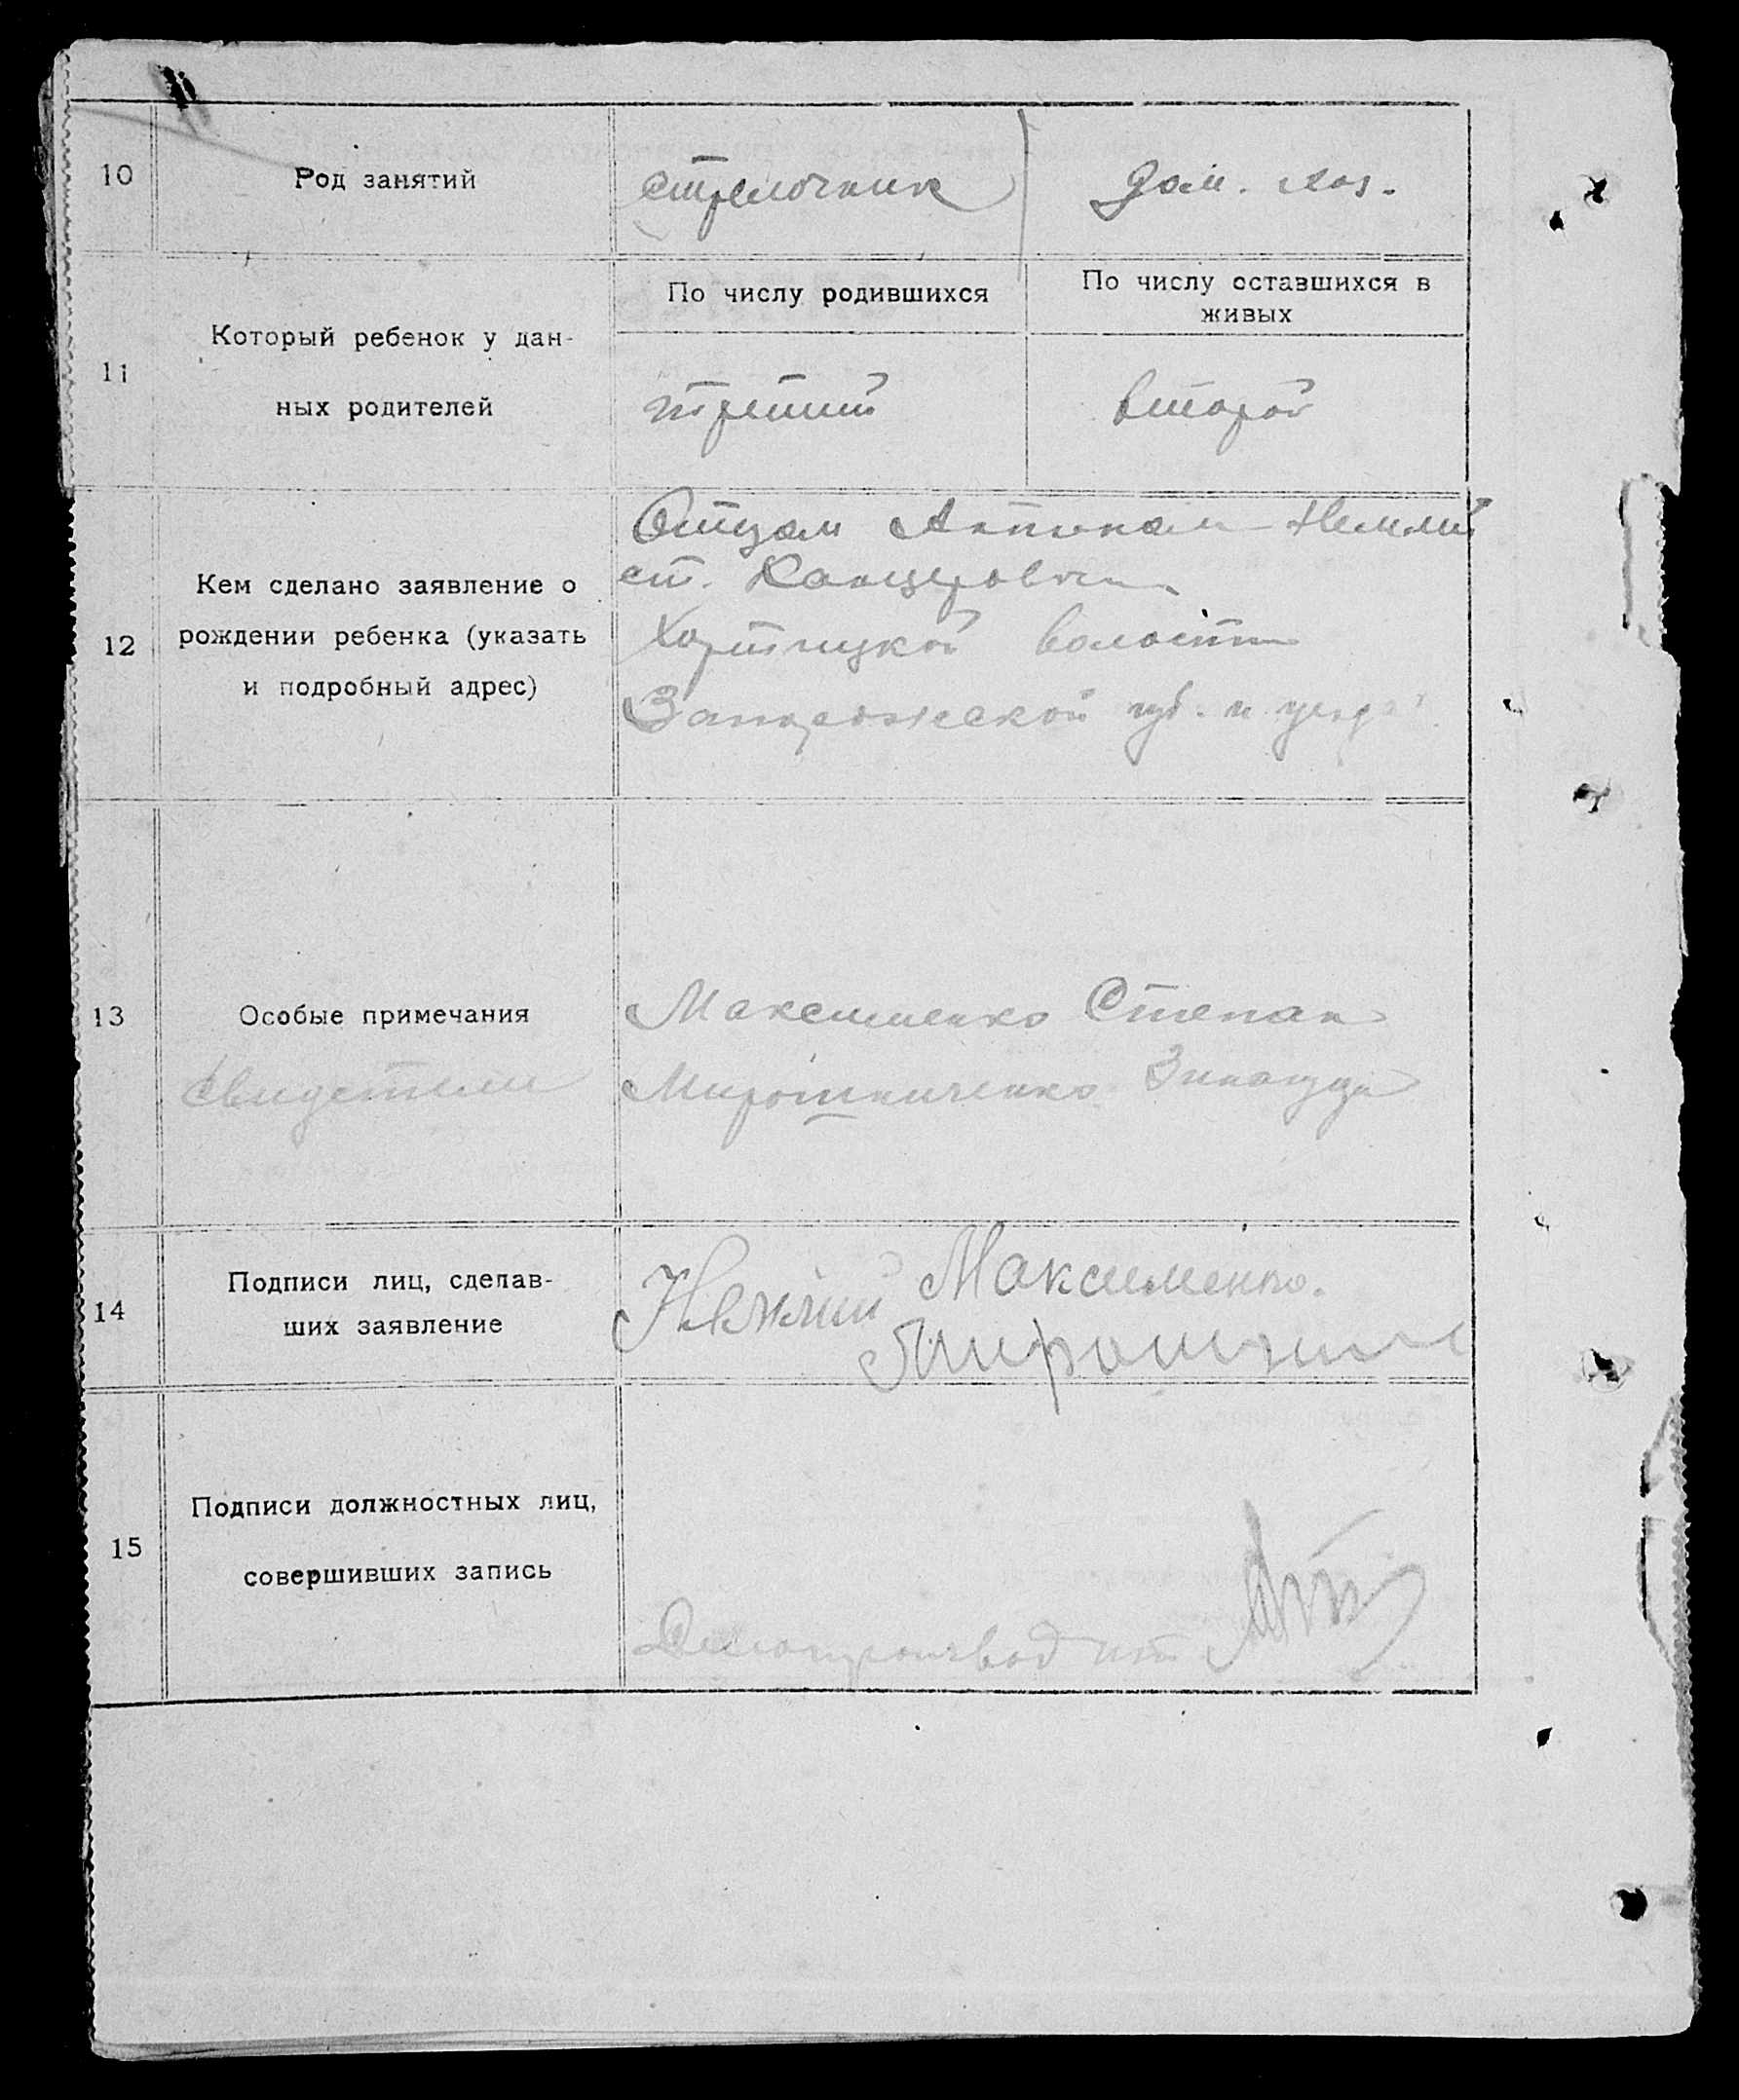 10
Род занятий
стрелочник
дом. хоз.
11
Который ребенок у дан-
ных родителей
По числу родившихся
По числу оставшихся в
живых
третий
второй
12
Кем сделано заявление о
рождении ребенка (указать
и подробный адрес)
Отцом Антоном
ст. Канцеровка
Хортицкой волости
Запорожской губ. и уезда
13
Особые примечания
Свидетели
Максименко Степан
Мирошниченко Зинаида
14
Подписи лиц, сделав-
ших заявление
Максименко.
15
Подписи должностных лиц,
совершивших запись
Делопроизводит